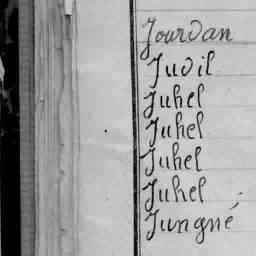 Jourdan
Judil
Juhel
Juhel
Juhel
Juhel
Jungné